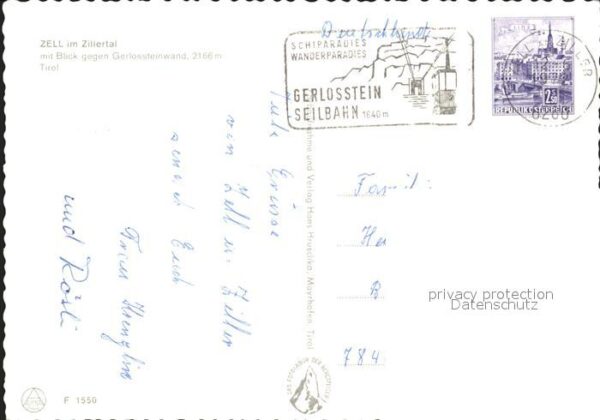 ZELL im Zillertal
mit Blick gegen Gerlossteinwand, 2166 m
Tirol
SCHIPARADIES
WANDERPARADIES
GERLOSSTEIN
SEILBAHN 1640 m
REPUBLIK ÖSTERREICH
6280
Gute Grüsse
von Zell a. Ziller
sendet Euch
Frau
und Rösli
Aufnahme und Verlag Hans Hruschka, Mayrhofen, Tirol
Famil.
He
B
784
privacy protection
Datenschutz
F 1550